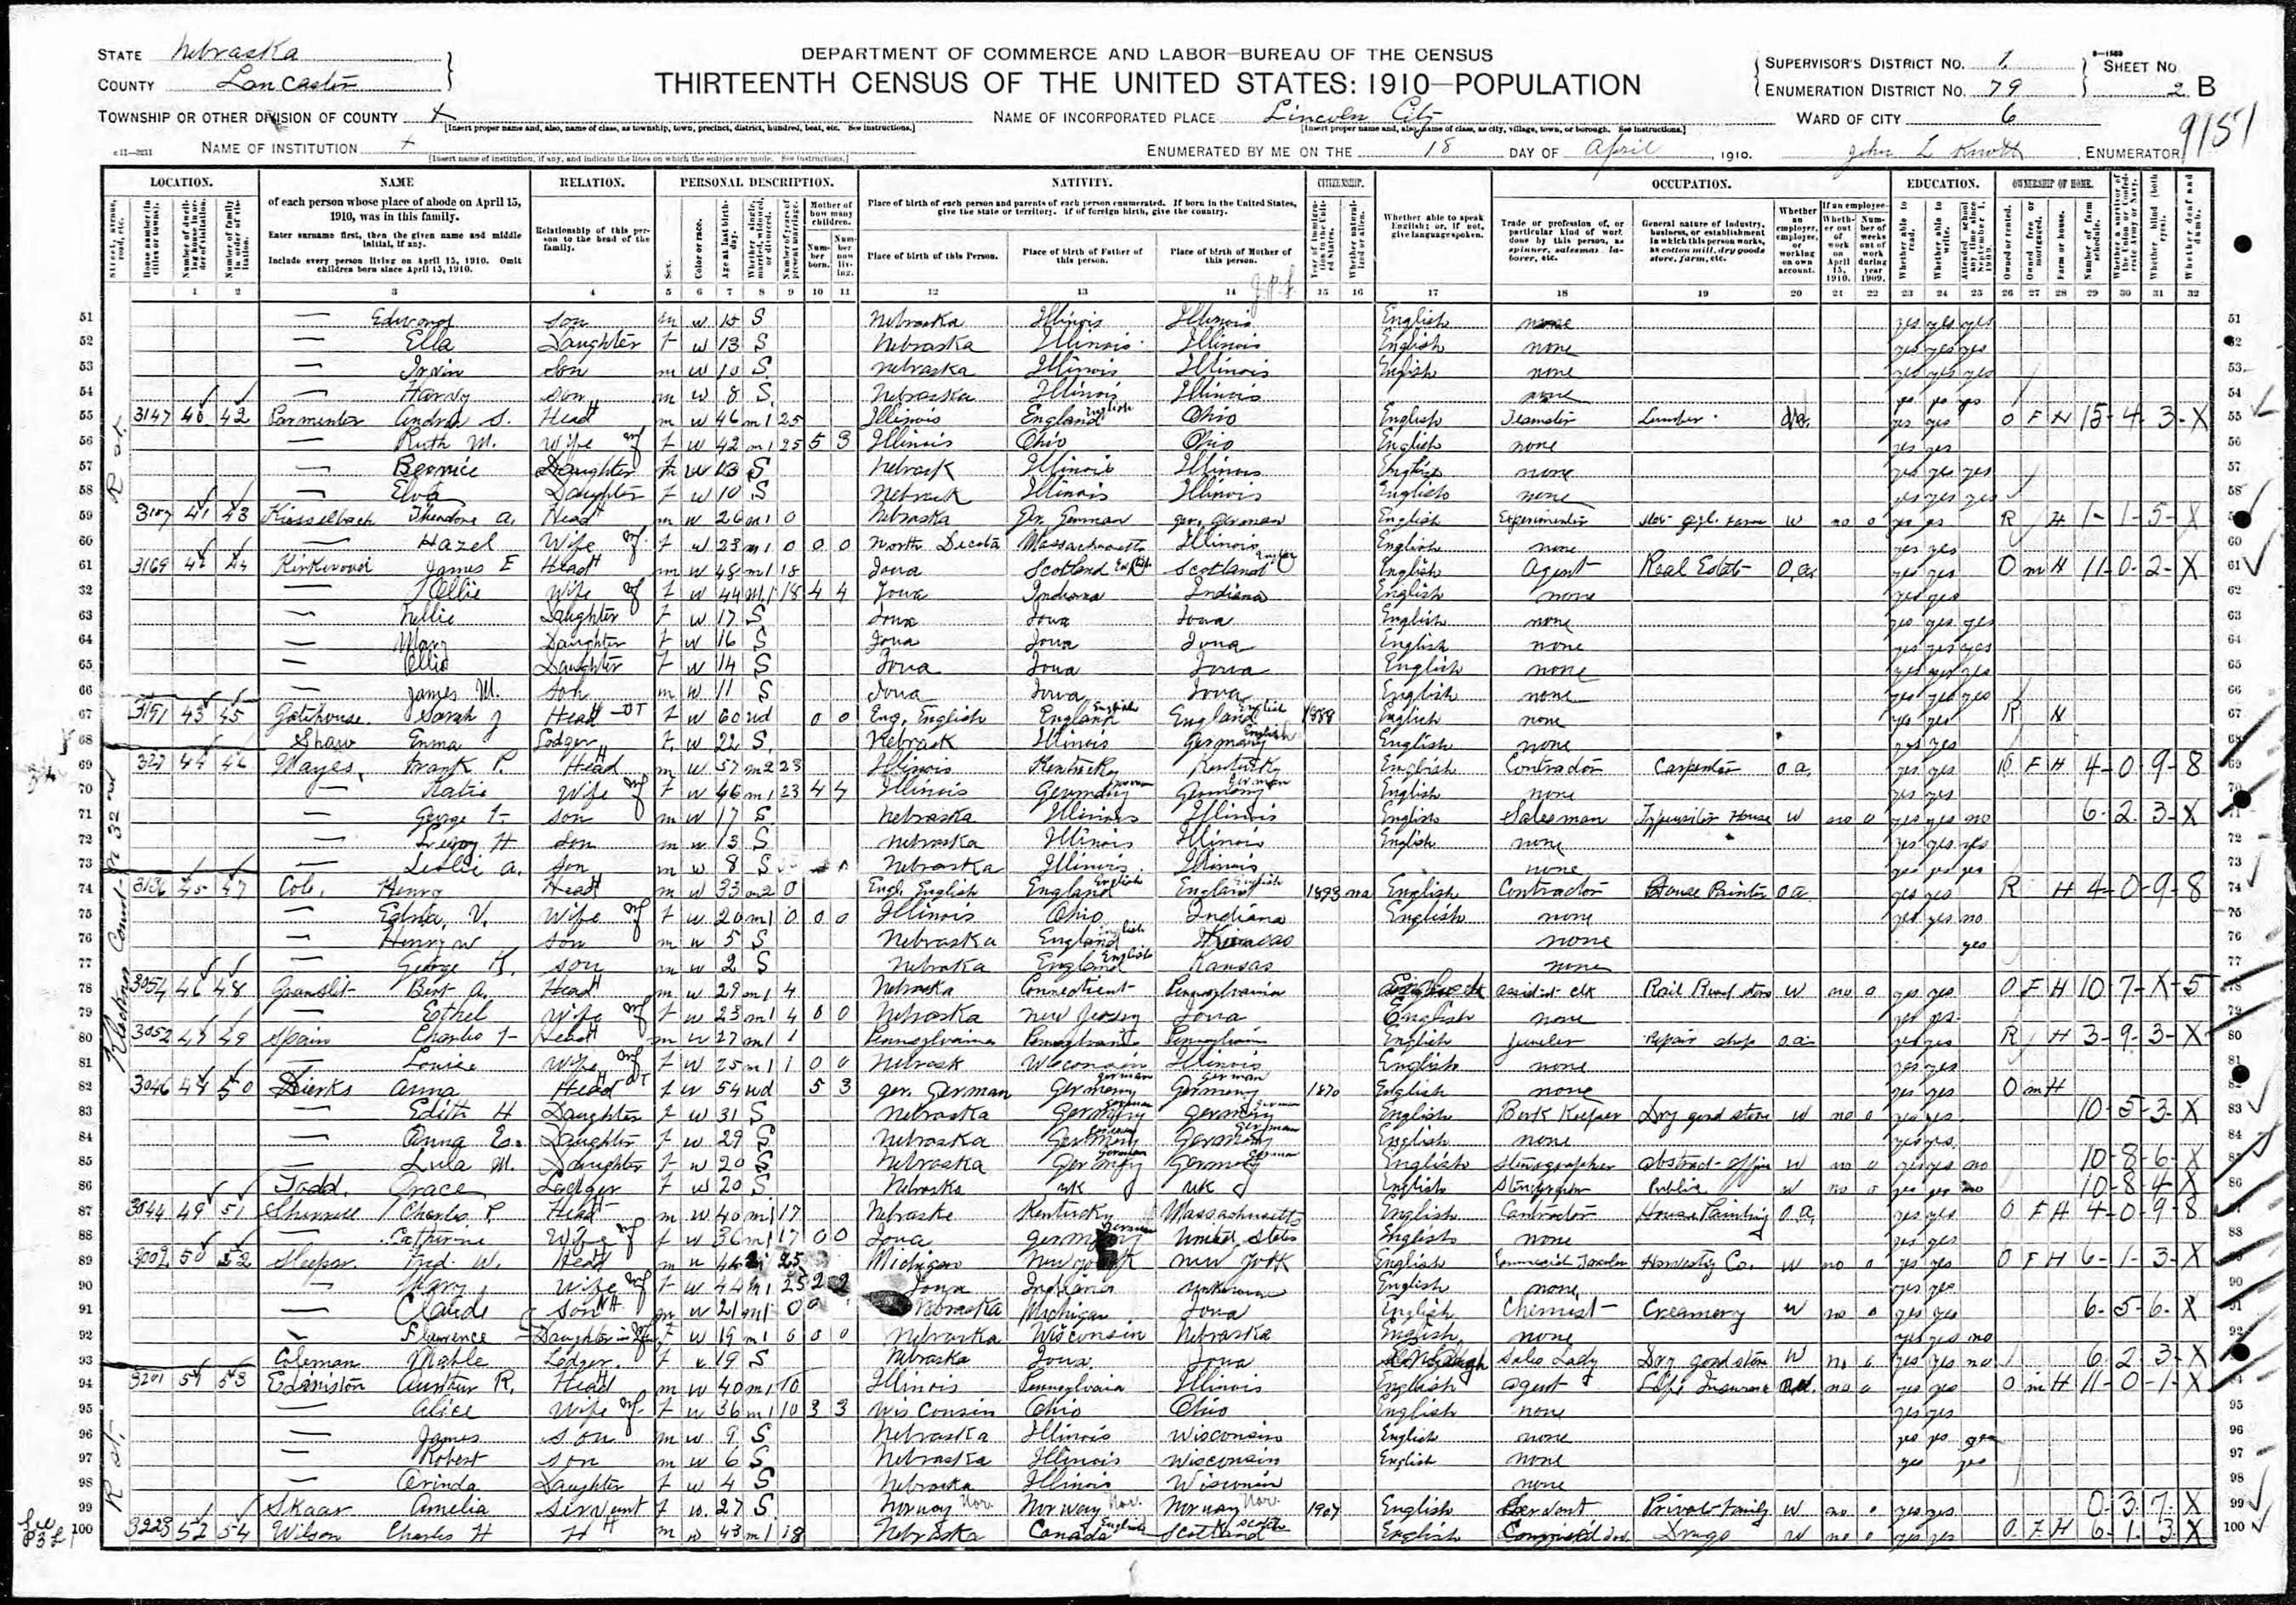 STATE Nebraska
COUNTY Lancaster
TOWNSHIP OR OTHER DIVISION OF COUNTY X
[Insert proper name and, also, name of class, as township, town, precinct, district, hundred, beat, etc. See instructions.]
NAME OF INSTITUTION X
[Insert name of institution, if any, and indicate the lines on which the entries are made. See instructions.]
DEPARTMENT OF COMMERCE AND LABOR—BUREAU OF THE CENSUS
THIRTEENTH CENSUS OF THE UNITED STATES: 1910—POPULATION
NAME OF INCORPORATED PLACE Lincoln City
[Insert proper name and, also, name of class, as city, village, town, or borough. See instructions.]
ENUMERATED BY ME ON THE 18 DAY OF April, 1910.
SUPERVISOR'S DISTRICT NO. 1
ENUMERATION DISTRICT NO. 79
SHEET NO. 2 B
WARD OF CITY 6
9151
John L Knott, ENUMERATOR
LOCATION. NAME RELATION. PERSONAL DESCRIPTION. NATIVITY. CITIZENSHIP. OCCUPATION. EDUCATION. OWNERSHIP OF HOME.
of each person whose place of abode on April 15, 1910, was in this family.
Enter surname first, then the given name and middle initial, if any.
Include every person living on April 15, 1910. Omit children born since April 15, 1910.
Relationship of this person to the head of the family.
Place of birth of each person and parents of each person enumerated. If born in the United States, give the state or territory. If of foreign birth, give the country.
Place of birth of this Person. Place of birth of Father of this person. Place of birth of Mother of this person.
Whether able to speak English; or, if not, give language spoken.
51 — Edward Son m w 15 S Nebraska Illinois Illinois English none yes yes yes
52 — Ella Daughter f w 13 S Nebraska Illinois Illinois English none yes yes yes
53 — Irvin Son m w 10 S Nebraska Illinois Illinois English none yes yes yes
54 — Harry Son m w 8 S Nebraska Illinois Illinois none yes yes yes
55 3147 40 42 Parmenter Andrew S. Head m w 46 m1 25 Illinois England English Ohio English Teamster Lumber yes yes O F H 15-4-3-X
56 — Ruth M. Wife f w 42 m1 25 5 3 Illinois Ohio Ohio English none yes yes
57 — Bernice Daughter f w 13 S Nebrask Illinois Illinois English none yes yes yes
58 — Elva Daughter f w 10 S Nebrask Illinois Illinois English none yes yes yes
59 41 43 Kiesselbach Theodore A. Head m w 26 m1 0 Nebraska Ger. German Ger. German English w no 0 R H 1-1-5-X
60 — Hazel Wife f w 23 m1 0 0 0 North Decota Massachusetts Illinois English none yes yes
61 3169 42 44 Kirkwood James E Head m w 48 m1 18 Iowa Scotland Scotland English Agent Real Estate O.a. yes yes O m H 11-0-2-X
62 — Ollie Wife f w 44 m1 18 4 4 Iowa Indiana Indiana English none yes yes
63 — Nellie Daughter f w 17 S Iowa Iowa Iowa English none yes yes yes
64 — Mary Daughter f w 16 S Iowa Iowa Iowa English none yes yes yes
65 — Ollie Daughter f w 14 S Iowa Iowa Iowa English none yes yes yes
66 — James M. Son m w 11 S Iowa Iowa Iowa English none yes yes yes
67 3191 43 45 Gatehouse Sarah J Head f w 60 wd 0 0 Eng. English England English England English 1888 English none yes yes R H
68 Shaw Emma Lodger f w 22 S Nebrask Illinois Germany English none yes yes
69 327 44 46 Mayes, Frank P. Head m w 57 m2 23 Illinois Kentucky Kentucky English Contractor Carpenter o a. yes yes O F H 4-0-9-8
70 — Katie Wife f w 46 m1 23 4 4 Illinois Germany German Germany German English none yes yes
71 — George F. Son m w 17 S Nebraska Illinois Illinois English Salesman Typewriter House w no 0 yes yes no 6-2-3-X
72 — Leroy H Son m w 13 S Nebraska Illinois Illinois English none yes yes yes
73 — Leslie A. Son m w 8 S Nebraska Illinois Illinois none yes yes yes
74 3136 45 47 Cole, Henry Head m w 33 m2 0 Eng. English England English England English 1893 na English Contractor House Painter o a. yes yes R H 4-0-9-8
75 — Edna, V. Wife f w 20 m1 0 0 0 Illinois Ohio Indiana English none yes yes no
76 — Henry W Son m w 5 S Nebraska England English Kansas none yes
77 — George K. Son m w 2 S Nebraska England English Kansas none
78 3054 46 48 Bert A. Head m w 29 m1 4 Nebraska Connecticut Pennsylvania assist clk Rail Road store w no 0 yes yes O F H 10-7-X-5
79 — Ethel Wife f w 23 m1 4 0 0 Nebraska New Jersey Iowa English none yes yes
80 3052 47 49 Spain Charles F Head m w 27 m1 1 Pennsylvania Pennsylvania Pennsylvania English Jeweler Repair shop o a yes yes R H 3-9-3-X
81 — Louise Wife f w 25 m1 1 0 0 Nebrask Wisconsin Illinois English none yes yes
82 3046 48 50 Dierks Anna Head f w 54 wd 5 3 Ger. German Germany German Germany German 1870 English none yes yes O m H
83 — Edith H Daughter f w 31 S Nebraska Germany German Germany German English Book Keeper Dry good store w no 0 yes yes 10-5-3-X
84 — Anna Daughter f w 29 S Nebraska Germany German Germany German English none yes yes
85 — Lula M. Daughter f w 20 S Nebraska Germany German Germany German English Stenographer Abstract office w no 0 yes yes no 10-8-6-X
86 Todd, Grace Lodger f w 20 S Nebraska UK UK English Stenographer Public w no 0 yes yes no 10-8-4-X
87 3044 49 51 Charles P. Head m w 40 m1 17 Nebraske Kentucky Massachusetts English Contractor House Painting O.a. yes yes O F H 4-0-9-8
88 — Catherine Wife f w 36 m1 17 0 0 Iowa Germany German United States English none yes yes
89 3002 50 52 Sleeper Fred. W. Head m w 25 Michigan New York New York English Commercial Traveler Harvesting Co. w no 0 yes yes O F H 6-1-3-X
90 — Mary Wife f w 44 m1 25 2 2 Iowa Indiana Unknown English none yes yes
91 — Claude Son m w 21 m1 0 Nebraska Michigan Iowa English Chemist Creamery w no 0 yes yes 6-5-6-X
92 — Florence Daughter in law f w 19 m1 0 0 0 Nebraska Wisconsin Nebraska English none yes yes no
93 Coleman Mable Lodger f w 19 S Nebraska Iowa Iowa Sales Lady Dry good store w no 0 yes yes no 6 2 3-X
94 3201 51 53 Edmiston Aurthur R. Head m w 40 m1 10 Illinois Pennsylvania Illinois English Agent Life Insurance no 0 yes yes O m H 11-0-1-X
95 — Alice Wife f w 36 m1 10 3 3 Wisconsin Ohio Ohio English none yes yes
96 — James Son m w 9 S Nebraska Illinois Wisconsin English none yes yes yes
97 — Robert Son m w 6 S Nebraska Illinois Wisconsin English none yes yes
98 — Orinda Daughter f w 4 S Nebraska Illinois Wisconsin none
99 Skaar Amelia Servant f w 27 S Norway Nor. Norway Nor. Norway Nor. 1907 English Servant Private Family w no 0 yes yes 0-3-7-X
100 3223 52 54 Wilson Charles H H m w 43 m1 18 Nebraska Canada English Scotland Scotch English Drugs w no 0 yes yes O F H 6-1-3-X